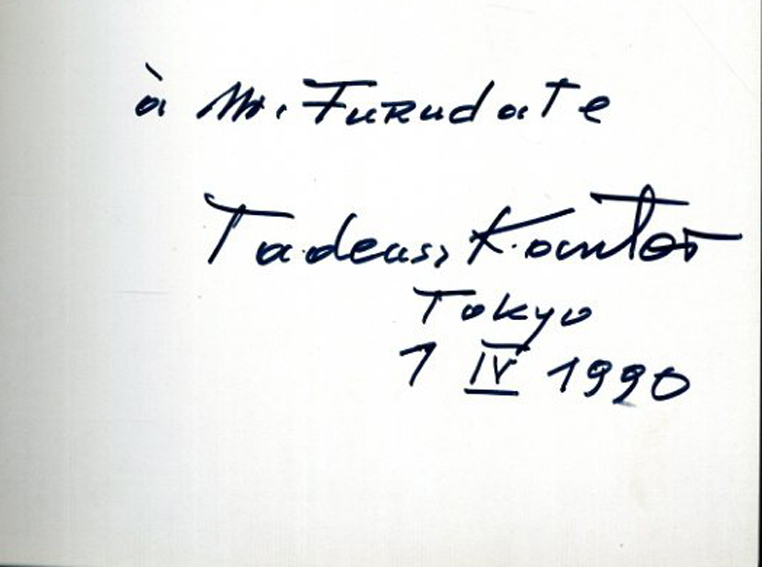 à M. Furudate
Tadeusz Kantor
Tokyo
1 IV 1990